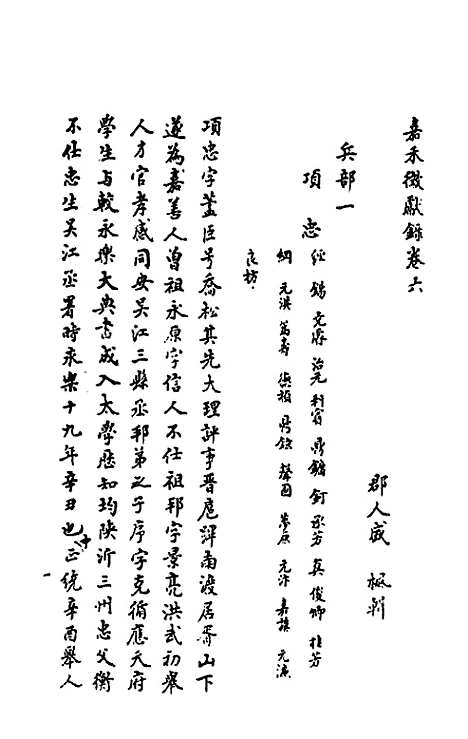 嘉禾徵獻錄卷六
郡人盛　楓輯
兵部一
項　忠
經　錫　文　治元　利賓　鼎鏞　釘　承芳　真　俊卿　桂芳
綱　元淇　篤壽　德楨　鼎鉉　聲國　夢原　元汴　嘉謨　元濂
良枋
項忠字藎臣号喬松其先大理評事晋扈蹕南渡居胥山下
遂為嘉善人曾祖永原字信人不仕祖邦字景亮洪武初举
人才官孝感同安吴江三縣丞邦弟之子序字克循應天府
學生与較永樂大典書成入太學歷知均陝沂三州忠父衡
不仕忠生吴江丞署時永樂十九年辛丑也正統辛酉舉人
十